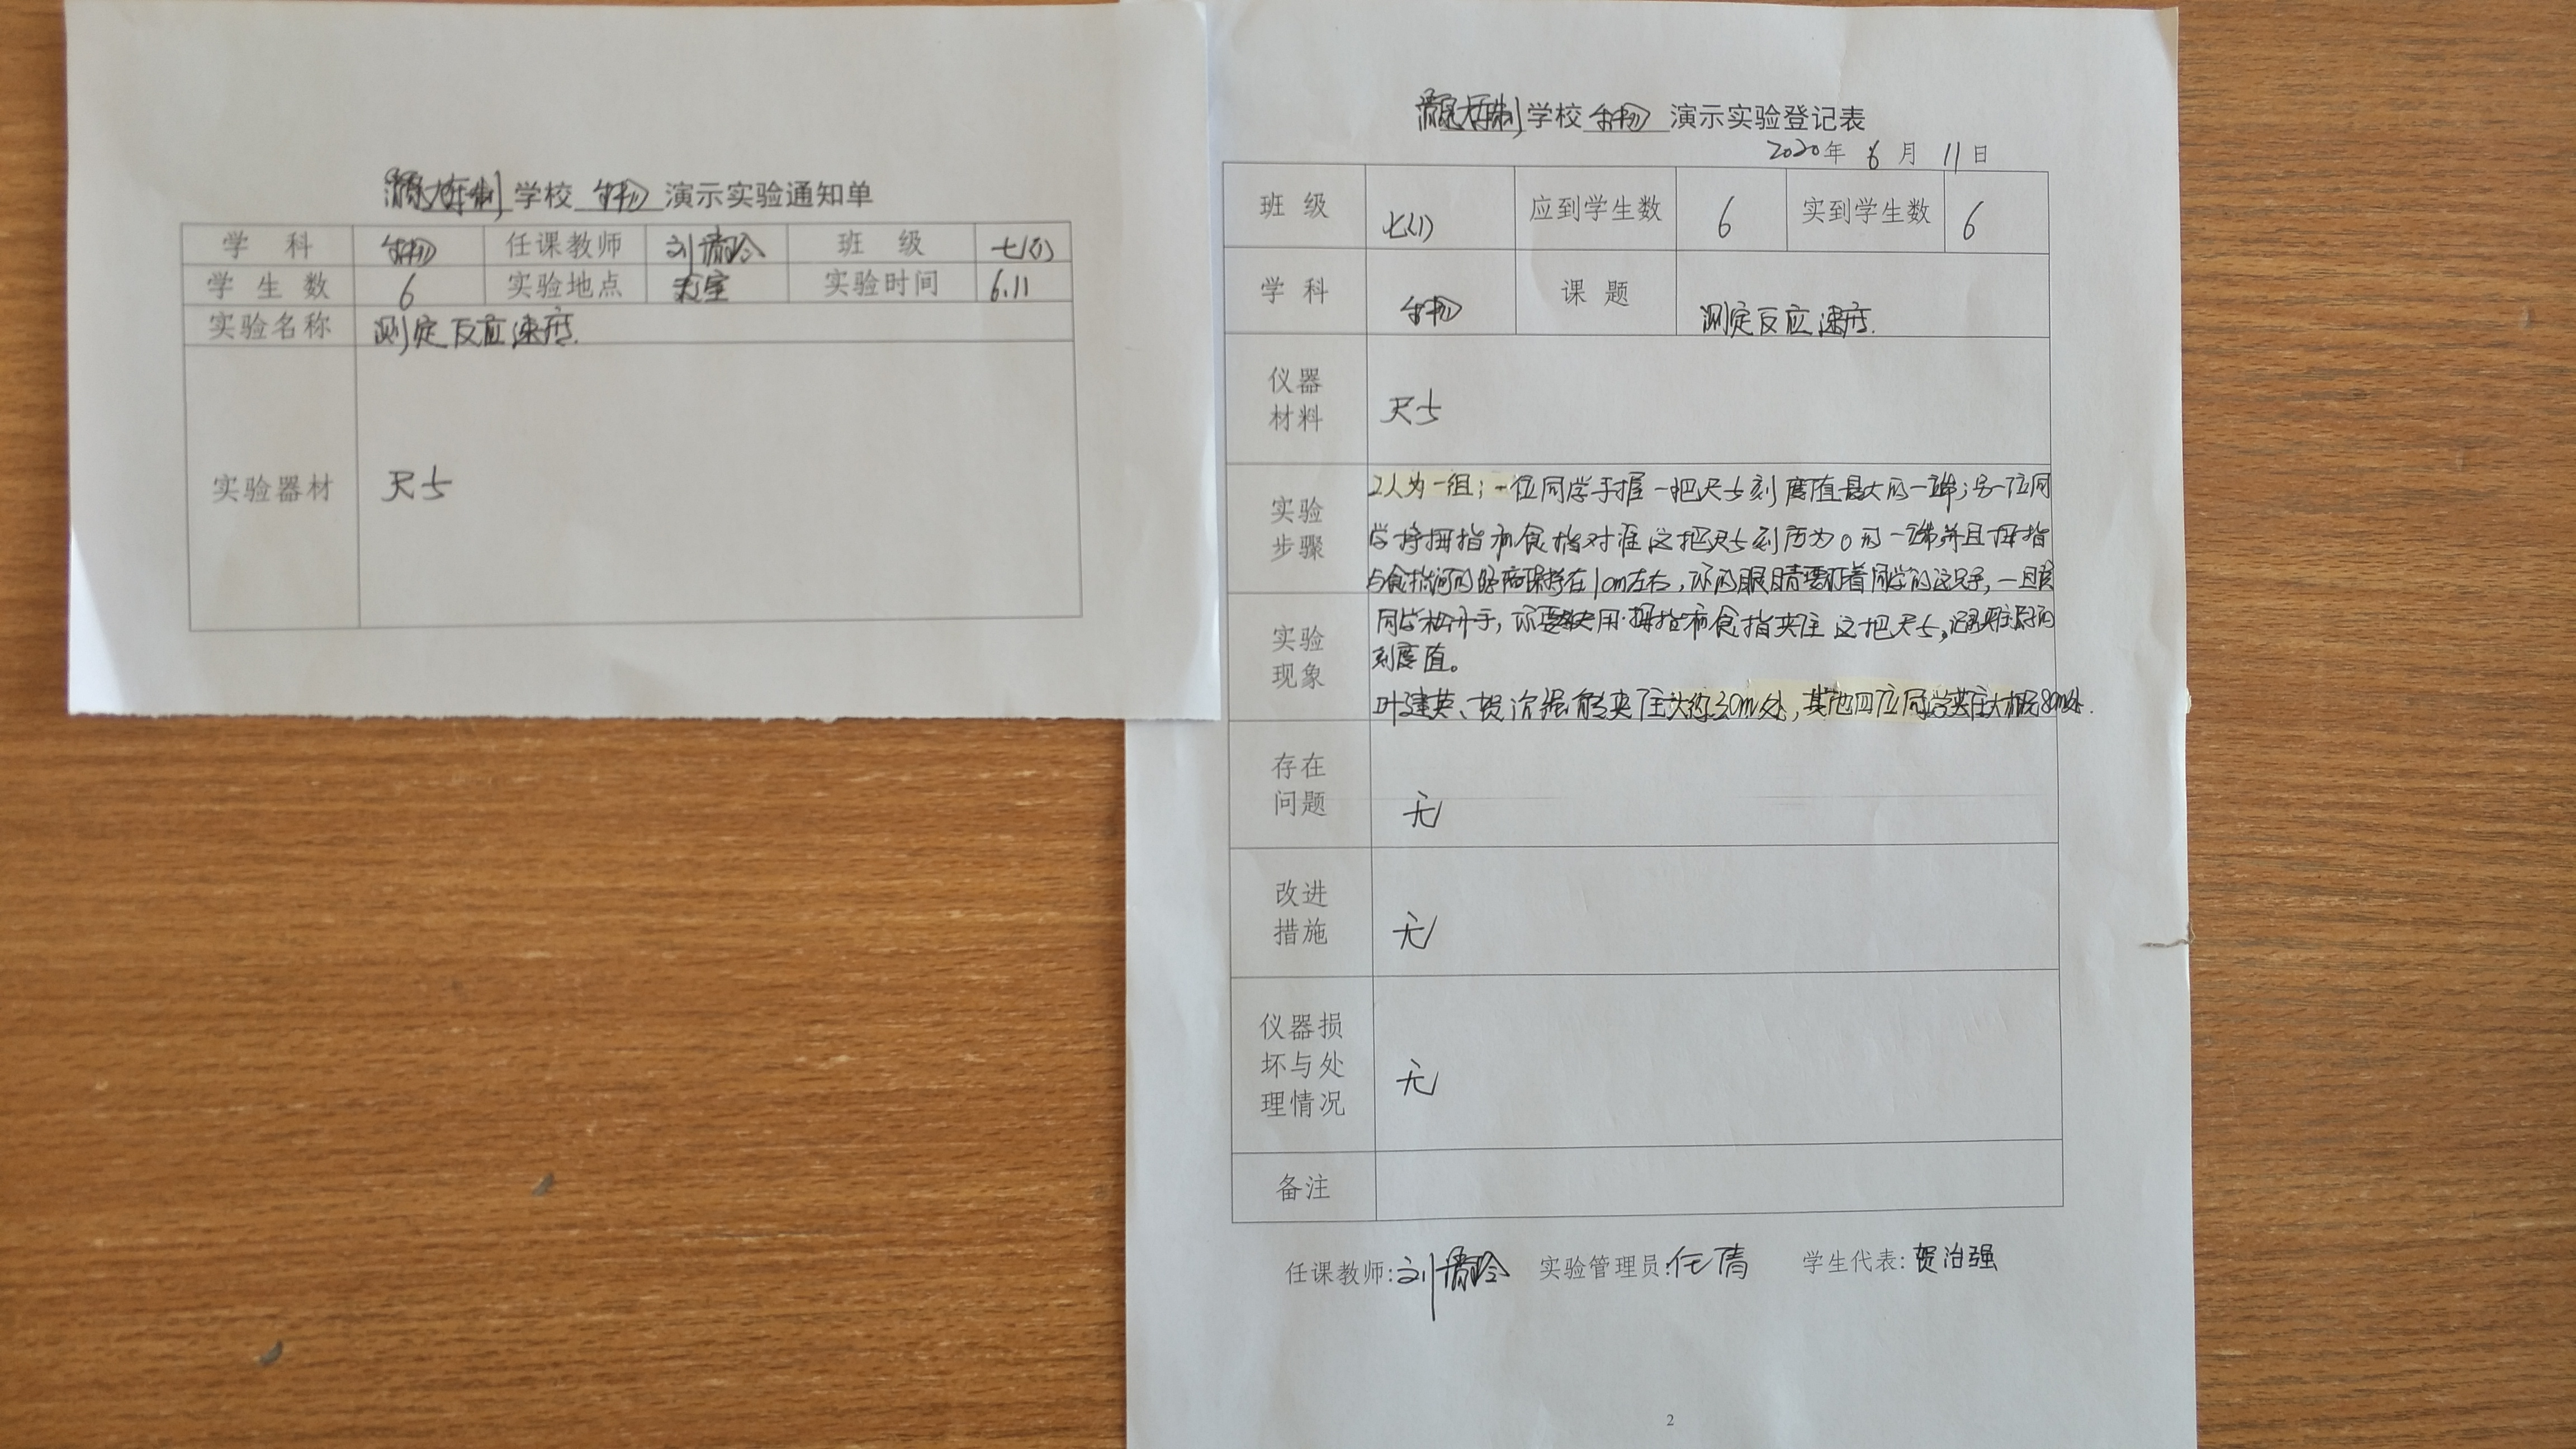 学校 生物 演示实验通知单
学 科 生物 任课教师 刘 班 级 七(1)
学 生 数 6 实验地点 教室 实验时间 6.11
实验名称 测定反应速度.
实验器材 尺子
学校 生物 演示实验登记表
2020年 6 月 11 日
班 级 七(1) 应到学生数 6 实到学生数 6
学 科 生物 课 题 测定反应速度.
仪器
材料
尺子
实验
步骤
2人为一组;一位同学手握一把尺子刻度值最大的一端;另一位同
学将拇指和食指对准这把尺子刻度为0的一端并且拇指
与食指间的距离保持在1cm左右,你的眼睛要盯着同学的这只手,一旦
实验
现象
同学松开手,你要赶快用拇指和食指夹住这把尺子,记录夹住尺子的
刻度值。
叶建英、贺治强能夹住大约30cm处,其他四位同学夹住大概8cm处.
存在
问题
无
改进
措施
无
仪器损
坏与处
理情况
无
备注
任课教师:刘 实验管理员:任倩 学生代表:贺治强
2